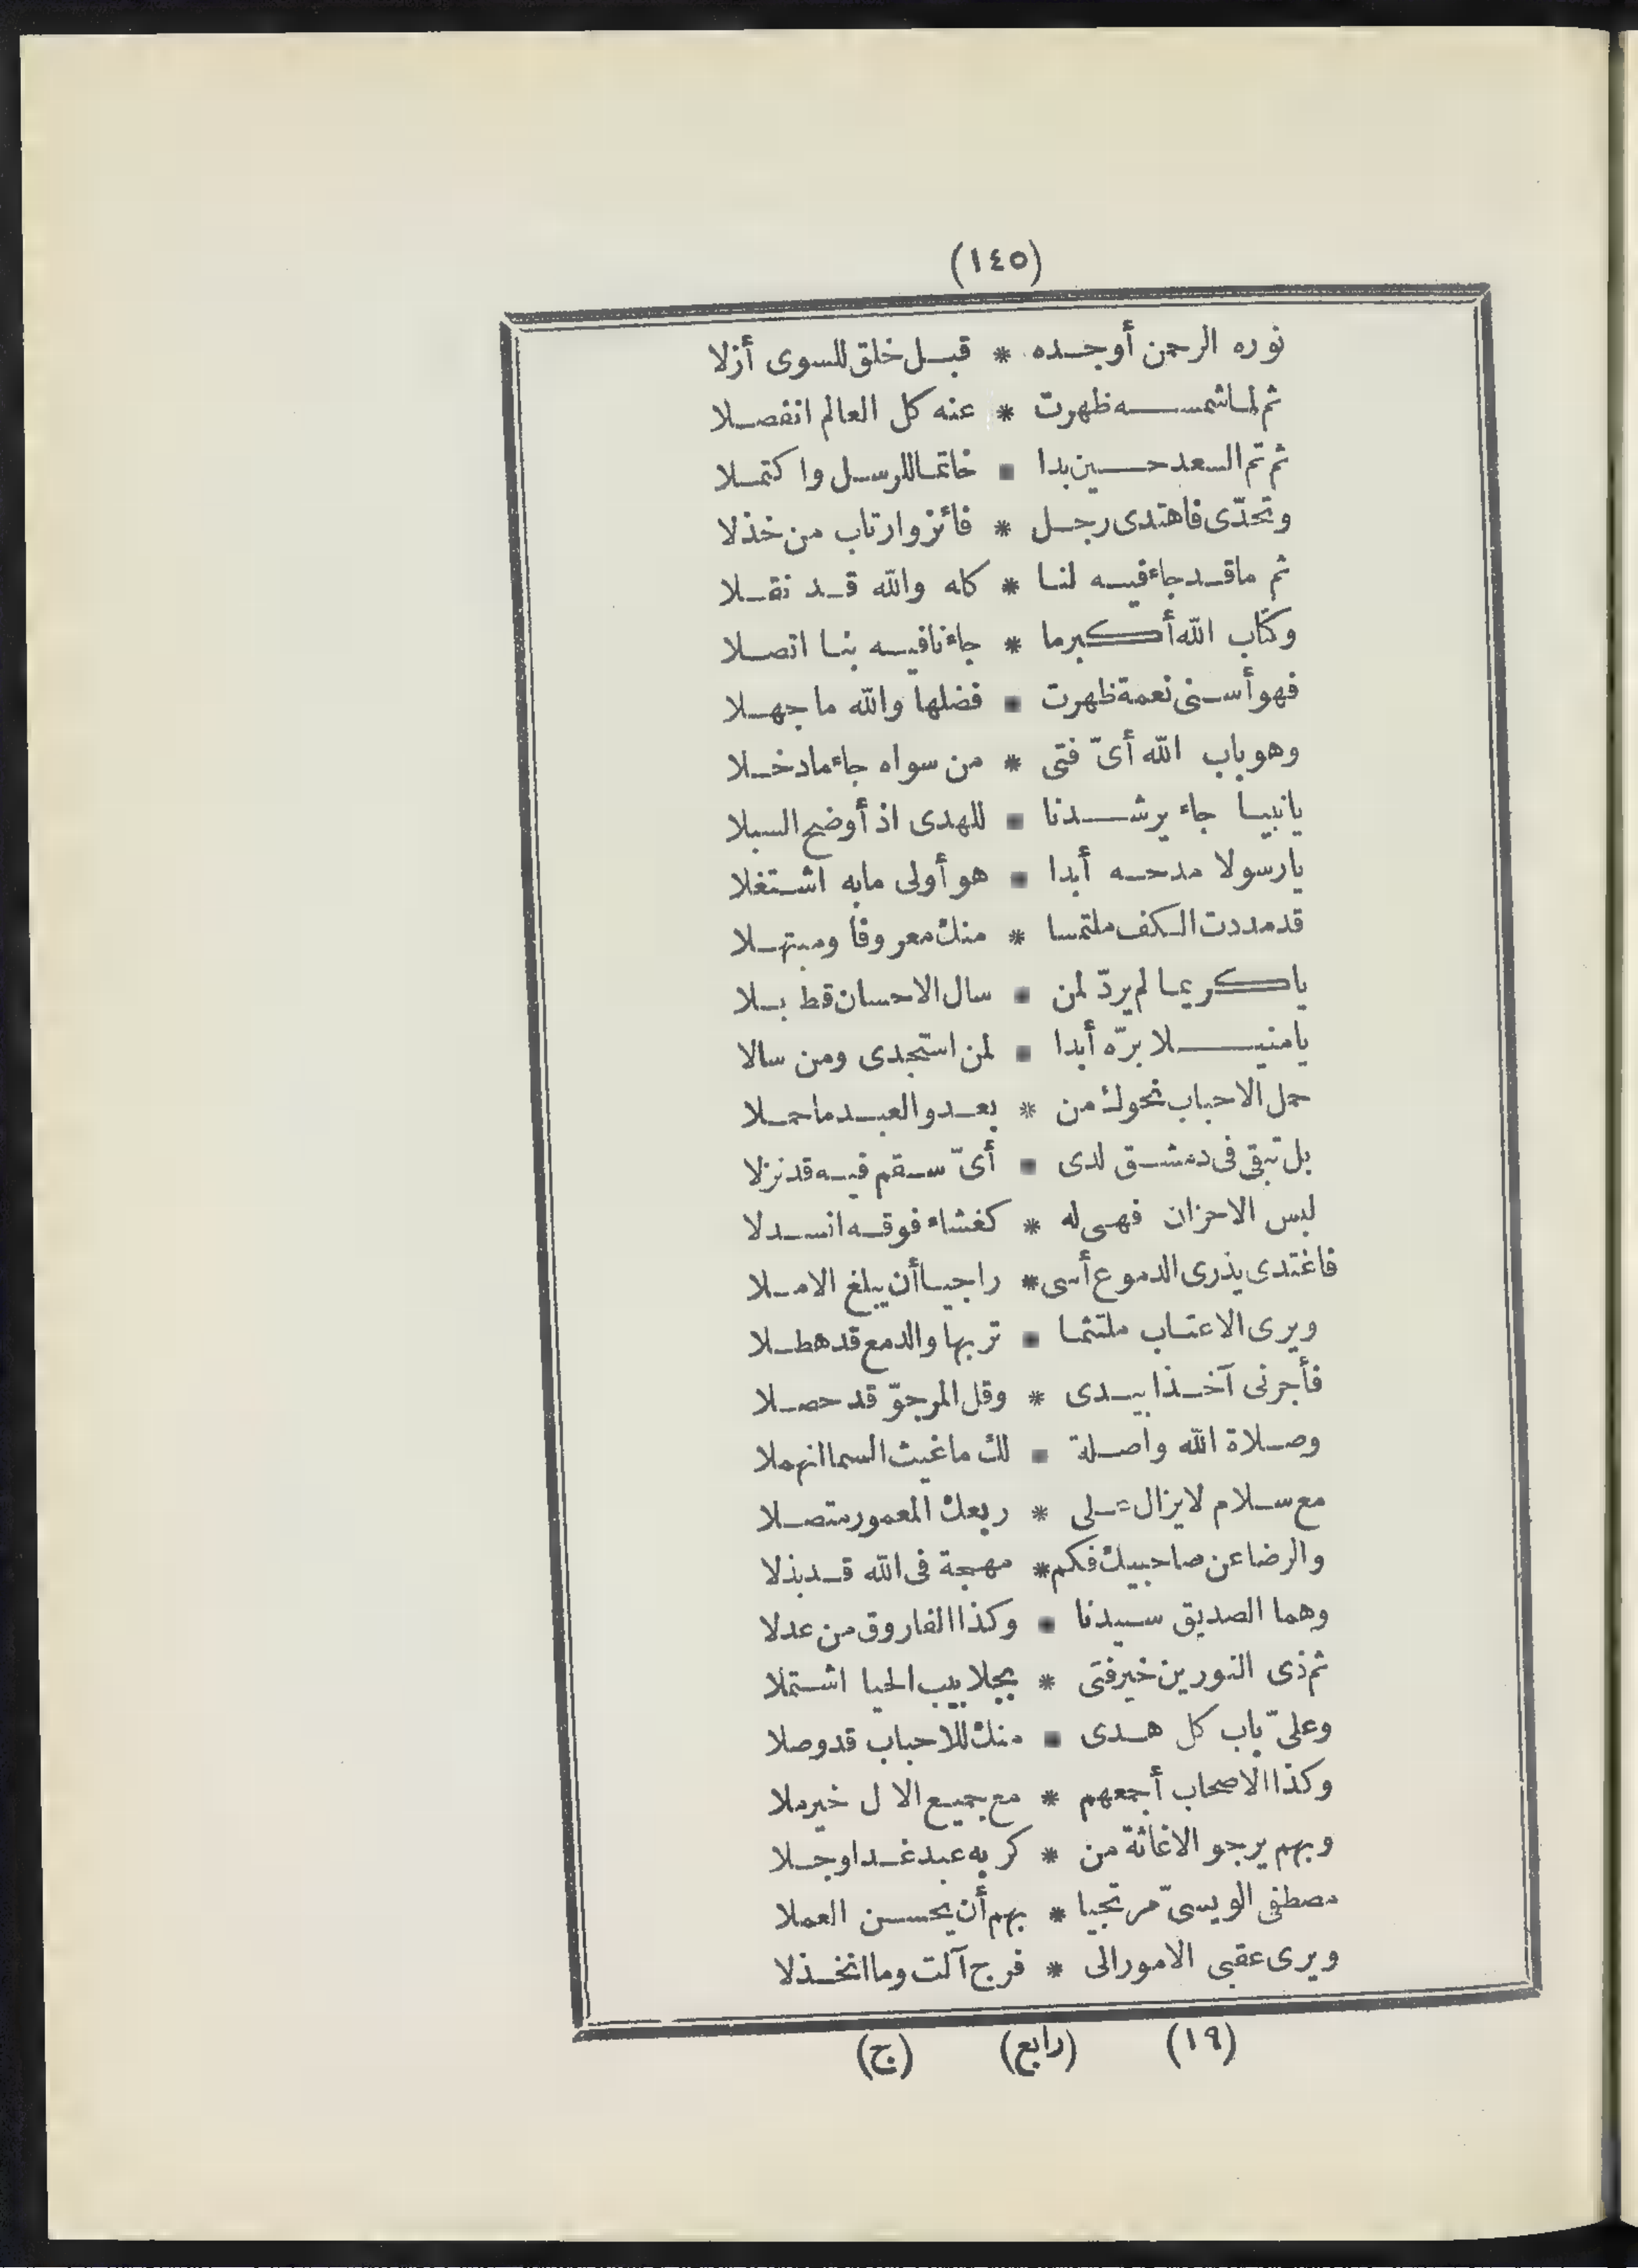 (١٤٥)
نوره الرحمن أوجده * قبل خلق للسوى أزلا
ثم لما شمسه ظهرت * عنه كل العالم انفصلا
ثم تم السعد حين بدا * خاتما للرسل واكتملا
وتحدّى فاهتدى رجل * فائز وارتاب من خذلا
ثم ماقد جاء فيه لنا * كله والله قد نقلا
وكتاب الله أكبر ما * جاءنا فيه بنا اتصلا
فهو أسنى نعمة ظهرت * فضلها والله ما جهلا
وهو باب الله أىّ فتى * من سواه جاء مادخلا
يانبيا جاء يرشدنا * للهدى اذ أوضح السبلا
يارسولا مدحه أبدا * هو أولى مابه اشتغلا
قد مددت الكف ملتمسا * منك معروفا ومبتهلا
ياكريما لم يردّ لمن * سال الاحسان قط بلا
يامنيلا برّه أبدا * لمن استجدى ومن سالا
حمل الاحباب نحوك من * بعد والعبد ماحملا
بل تبقى فى دمشق لدى * أىّ سقم فيه قد نزلا
لبس الاحزان فهى له * كغشاء فوقه انسدلا
فاغتدى يذرى الدموع أسى * راجيا أن يبلغ الاملا
ويرى الاعتاب ملتثما * تربها والدمع قد هطلا
فأجرنى آخذا بيدى * وقل المرجوّ قد حصلا
وصلاة الله واصلة * لك ماغيث السما انهملا
مع سلام لايزال على * ربعك المعمور متصلا
والرضا عن صاحبيك فكم * مهجة فى الله قد بذلا
وهما الصديق سيدنا * وكذا الفاروق من عدلا
ثم ذى النورين خير فتى * بجلابيب الحيا اشتملا
وعلىّ باب كل هدى * منك للاحباب قد وصلا
وكذا الاصحاب أجمعهم * مع جميع الا ل خير ملا
وبهم يرجو الاغاثة من * كربه عبد غدا وجلا
مصطفى الويسىّ مرتجيا * بهم أن يحسن العملا
ويرى عقبى الامور الى * فرج آلت وما انخذلا
(١٩) (رابع) (ج)